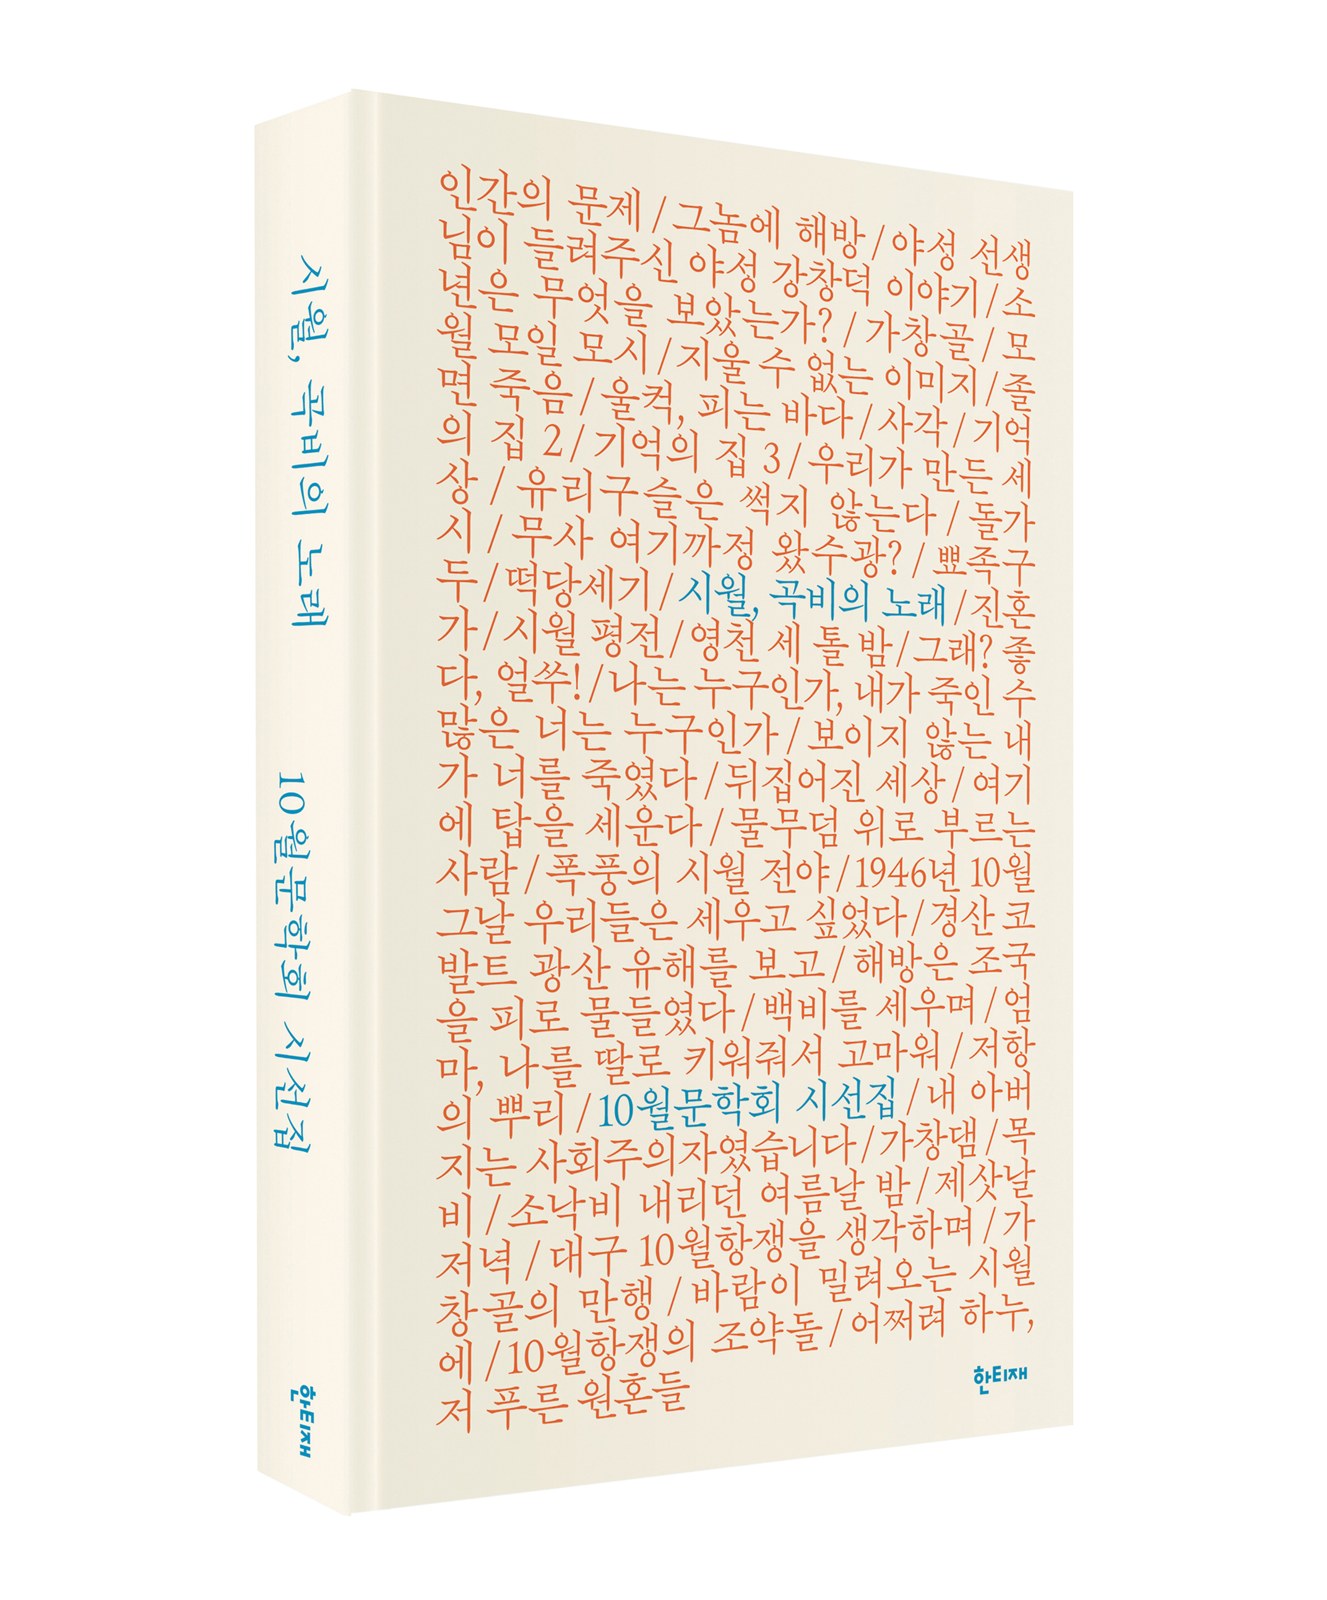 시월, 곡비의 노래
10월문학회 시선집
한티재
인간의 문제/그놈에 해방/야성 선생
님이 들려주신 야성 강창덕 이야기/소
년은 무엇을 보았는가?/가창골/모
월 모일 모시/지울 수 없는 이미지/졸
면 죽음/울컥, 피는 바다/사각/기억
의 집 2/기억의 집 3/우리가 만든 세
상/유리구슬은 썩지 않는다/돌가
시/무사 여기까정 왔수광?/뾰족구
두/떡당세기/시월, 곡비의 노래/진혼
가/시월 평전/영천 세 톨 밤/그래? 좋
다, 얼쑤!/나는 누구인가, 내가 죽인 수
많은 너는 누구인가/보이지 않는 내
가 너를 죽였다/뒤집어진 세상/여기
에 탑을 세운다/물무덤 위로 부르는
사람/폭풍의 시월 전야/1946년 10월
그날 우리들은 세우고 싶었다/경산 코
발트 광산 유해를 보고/해방은 조국
을 피로 물들였다/백비를 세우며/엄
마, 나를 딸로 키워줘서 고마워/저항
의 뿌리/10월문학회 시선집/내 아버
지는 사회주의자였습니다/가창댐/목
비/소낙비 내리던 여름날 밤/제삿날
저녁/대구 10월항쟁을 생각하며/가
창골의 만행/바람이 밀려오는 시월
에/10월항쟁의 조약돌/어쩌려 하누,
저 푸른 원혼들
한티재